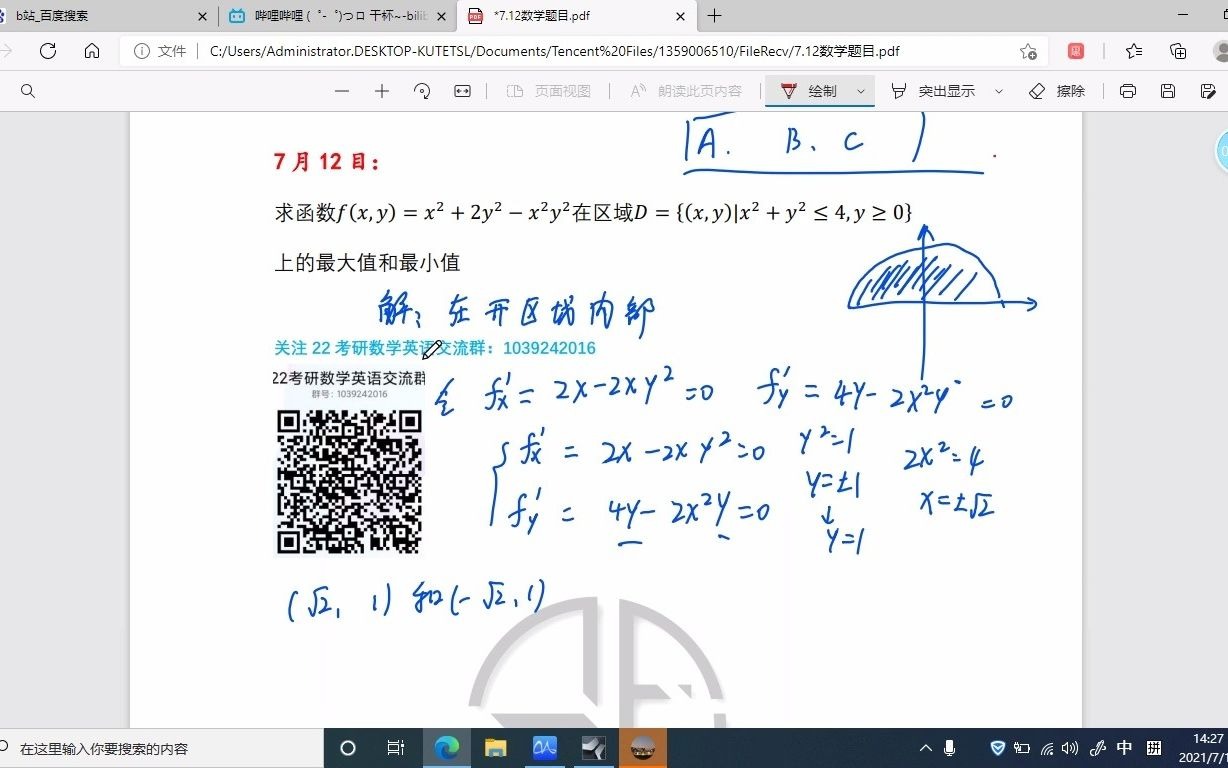 b站_百度搜索
哔哩哔哩 ( ゜- ゜)つロ 干杯~-bilib
*7.12数学题目.pdf
文件 C:/Users/Administrator.DESKTOP-KUTETSL/Documents/Tencent%20Files/1359006510/FileRecv/7.12数学题目.pdf
页面视图 朗读此页内容 绘制 突出显示 擦除
A. B、 C
7月12日：
求函数f(x,y) = x² + 2y² − x²y²在区域D = {(x,y)|x² + y² ≤ 4, y ≥ 0}
上的最大值和最小值
解：在开区域内部
关注22考研数学英语交流群：1039242016
22考研数学英语交流群
群号：1039242016
令 fx′ = 2x−2xy² =0 fy′ = 4y− 2x²y =0
fx′ = 2x −2xy²=0 y²=1 2x²=4
y=±1 x=±√2
fy′ = 4y− 2x²y =0
↓
y=1
(√2, 1) 和 (−√2, 1)
在这里输入你要搜索的内容
中 拼 14:27
2021/7/